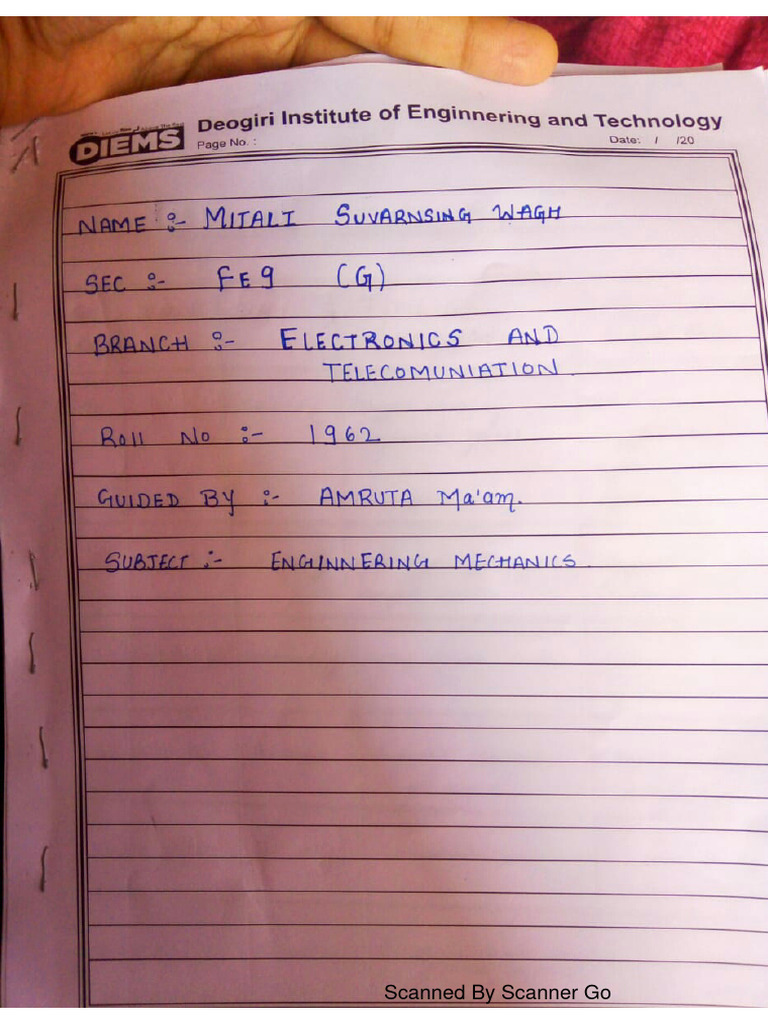 Deogiri Institute of Enginnering and Technology
DIEMS
Page No. :
Date: / /20
NAME :- MITALI SUVARNSING WAGH
SEC :- FE9 (G)
BRANCH :- ELECTRONICS AND
TELECOMUNIATION.
Roll No :- 1962
GUIDED BY :- AMRUTA Ma'am.
SUBJECT :- ENGINNERING MECHANICS.
Scanned By Scanner Go